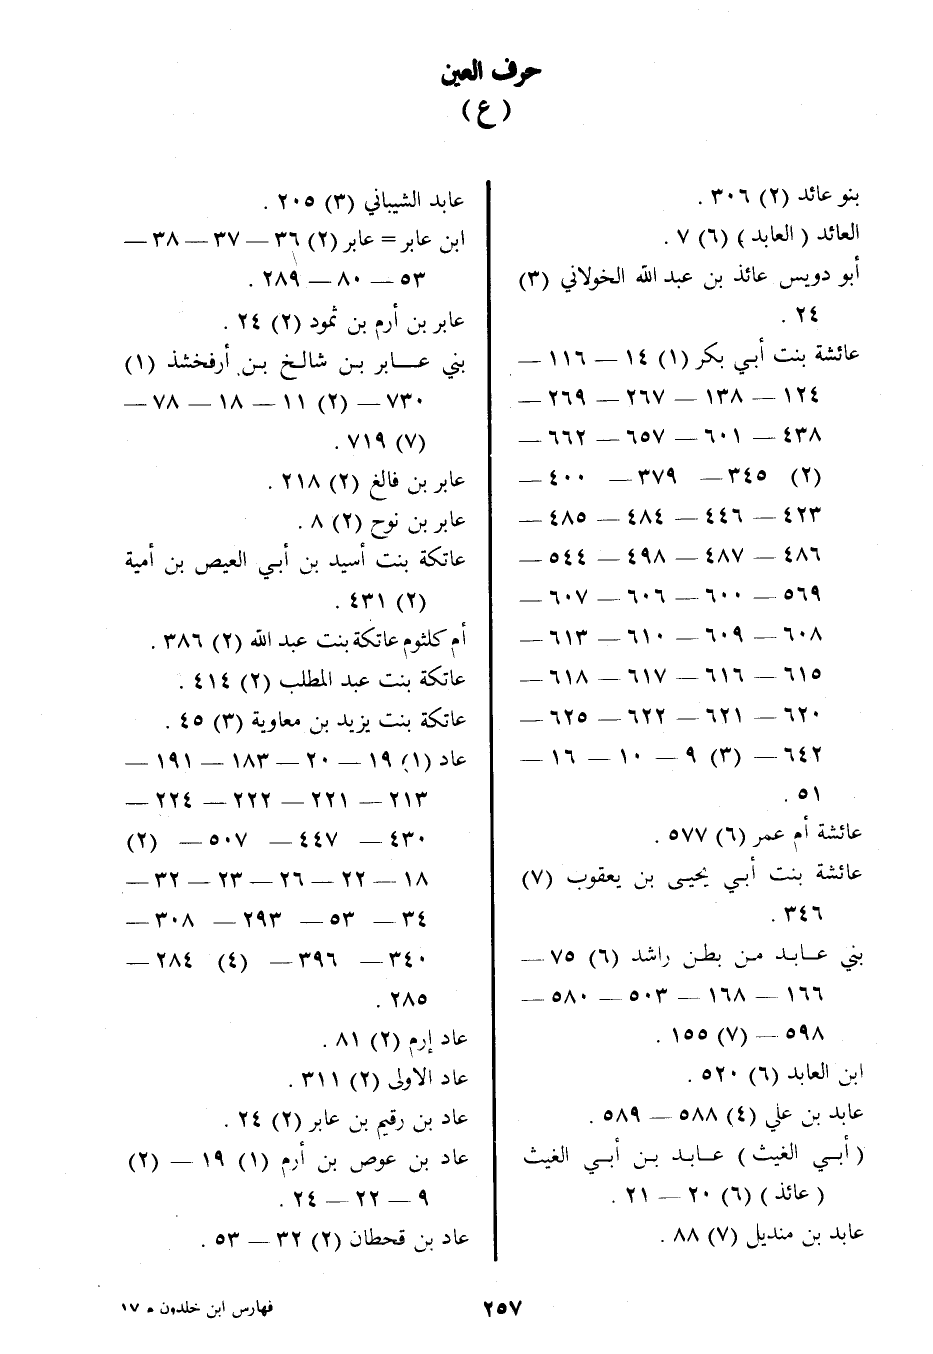 حرف العين
(ع)
بنو عائد (٢) ٣٠٦ .
العائد ( العابد ) (٦) ٧ .
أبو دويس عائذ بن عبد الله الخولاني (٣)
٢٤ .
عائشة بنت أبي بكر (١) ١٤ — ١١٦ —
١٢٤ — ١٣٨ — ٢٦٧ — ٢٦٩ —
٤٣٨ — ٦٠١ — ٦٥٧ — ٦٦٢ —
(٢) ٣٤٥ — ٣٧٩ — ٤٠٠ —
٤٢٣ — ٤٤٦ — ٤٨٤ — ٤٨٥ —
٤٨٦ — ٤٨٧ — ٤٩٨ — ٥٤٤ —
٥٦٩ — ٦٠٠ — ٦٠٦ — ٦٠٧ —
٦٠٨ — ٦٠٩ — ٦١٠ — ٦١٣ —
٦١٥ — ٦١٦ — ٦١٧ — ٦١٨ —
٦٢٠ — ٦٢١ — ٦٢٢ — ٦٢٥ —
٦٤٢ — (٣) ٩ — ١٠ — ١٦ —
٥١ .
عائشة أم عمر (٦) ٥٧٧ .
عائشة بنت أبي يحيى بن يعقوب (٧)
٣٤٦ .
بني عابد من بطن راشد (٦) ٧٥ —
١٦٦ — ١٦٨ — ٥٠٣ — ٥٨٠ —
٥٩٨ — (٧) ١٥٥ .
ابن العابد (٦) ٥٢٠ .
عابد بن علي (٤) ٥٨٨ — ٥٨٩ .
( أبي الغيث ) عابد بن أبي الغيث
( عائذ ) (٦) ٢٠ — ٢١ .
عابد بن منديل (٧) ٨٨ .
عابد الشيباني (٣) ٢٠٥ .
ابن عابر = عابر (٢) ٣٦ — ٣٧ — ٣٨ —
٥٣ — ٨٠ — ٢٨٩ .
عابر بن أرم بن ثمود (٢) ٢٤ .
بني عابر بن شالخ بن أرفخشذ (١)
٧٣٠ — (٢) ١١ — ١٨ — ٧٨ —
(٧) ٧١٩ .
عابر بن فالغ (٢) ٢١٨ .
عابر بن نوح (٢) ٨ .
عاتكة بنت أسيد بن أبي العيص بن أمية
(٢) ٤٣١ .
أم كلثوم عاتكة بنت عبد الله (٢) ٣٨٦ .
عاتكة بنت عبد المطلب (٢) ٤١٤ .
عاتكة بنت يزيد بن معاوية (٣) ٤٥ .
عاد (١) ١٩ — ٢٠ — ١٨٣ — ١٩١ —
٢١٣ — ٢٢١ — ٢٢٢ — ٢٢٤ —
٤٣٠ — ٤٤٧ — ٥٠٧ — (٢)
١٨ — ٢٢ — ٢٦ — ٢٣ — ٣٢ —
٣٤ — ٥٣ — ٢٩٣ — ٣٠٨ —
٣٤٠ — ٣٩٦ — (٤) ٢٨٤ —
٢٨٥ .
عاد إرم (٢) ٨١ .
عاد الاولى (٢) ٣١١ .
عاد بن رقيم بن عابر (٢) ٢٤ .
عاد بن عوص بن أرم (١) ١٩ — (٢)
٩ — ٢٢ — ٢٤ .
عاد بن قحطان (٢) ٣٢ — ٥٣ .
٢٥٧
فهارس ابن خلدون * ١٧